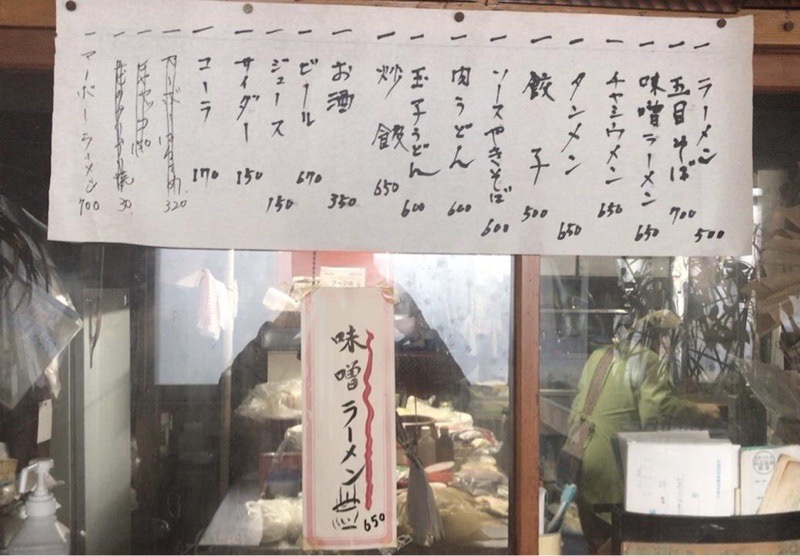 ラーメン 500
五目そば 700
味噌ラーメン 650
チャーシウメン 650
タンメン 650
餃子 500
ソースやきそば 600
肉うどん 600
玉子うどん 600
炒飯 650
お酒 350
ビール 670
ジュース 150
サイダー 150
コーラ 170
320
30
マーボーラーメン 700
味噌ラーメン
650